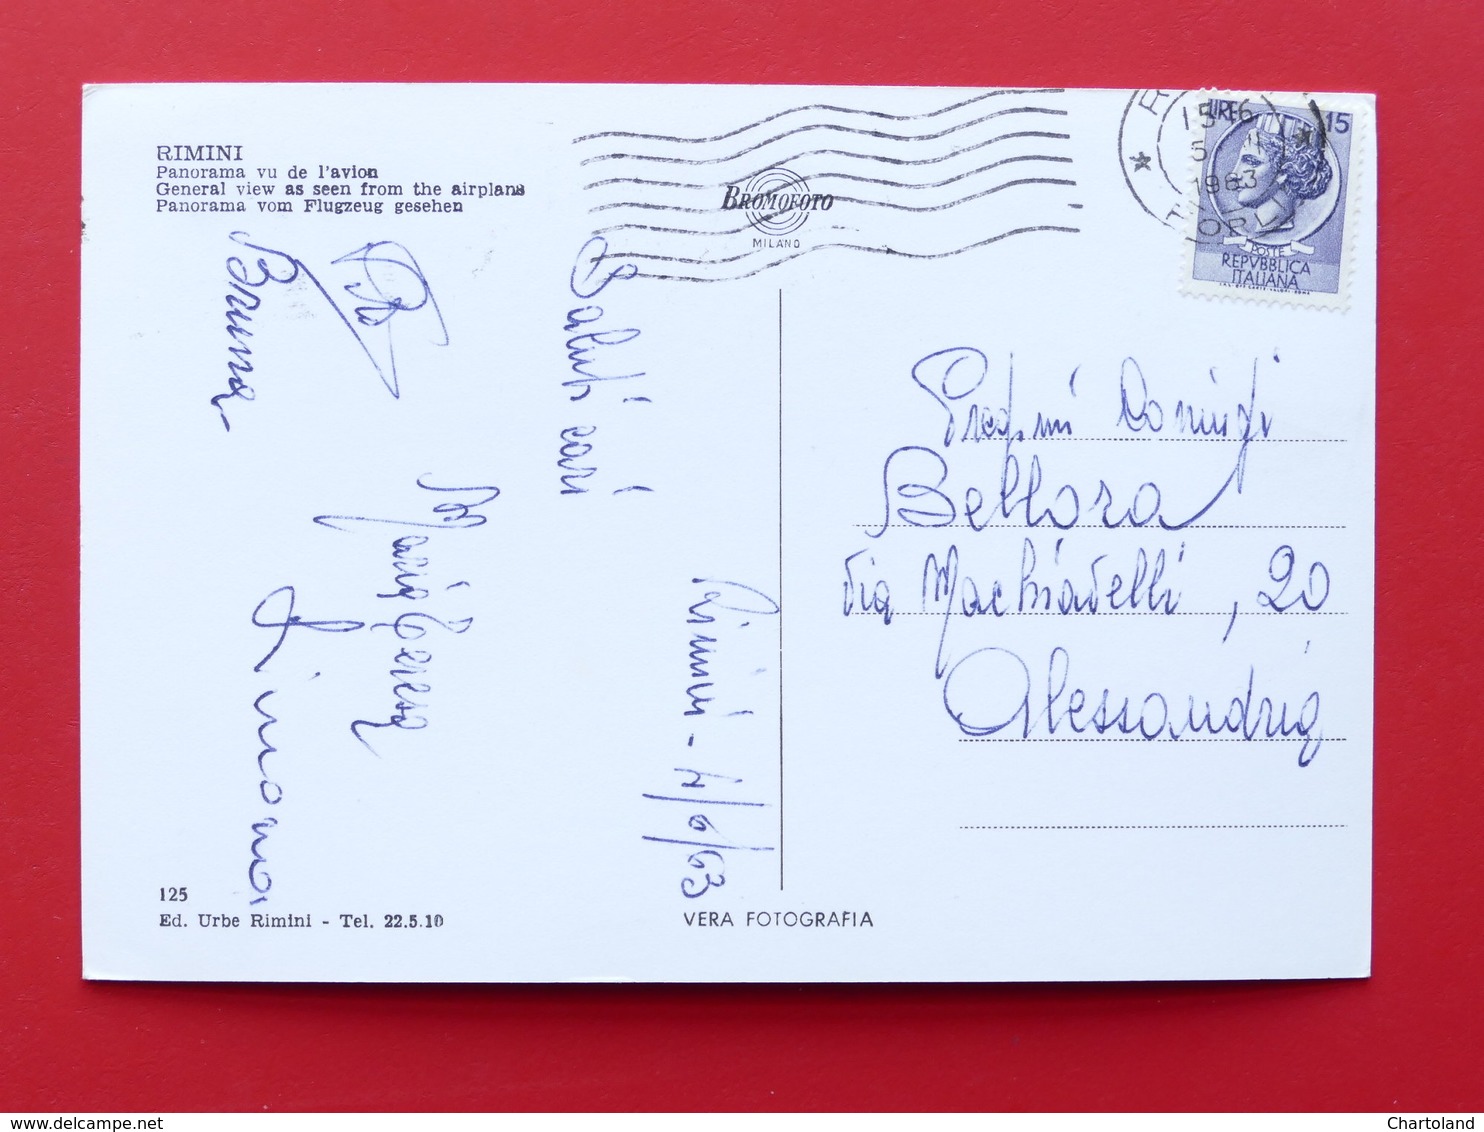 RIMINI
Panorama vu de l'avion
General view as seen from the airplans
Panorama vom Flugzeug gesehen
BROMOFOTO
MILANO
15-6
5
1963
LIRE 15
POSTE
REPVBBLICA
ITALIANA
Saluti cari
Rimini - 4/6/63
Maria Teresa
Bruna
Simona
Coniugi
Bellora
Via Machiavelli, 20
Alessandria
125
Ed. Urbe Rimini - Tel. 22.5.10
VERA FOTOGRAFIA
Chartoland
www.delcampe.net